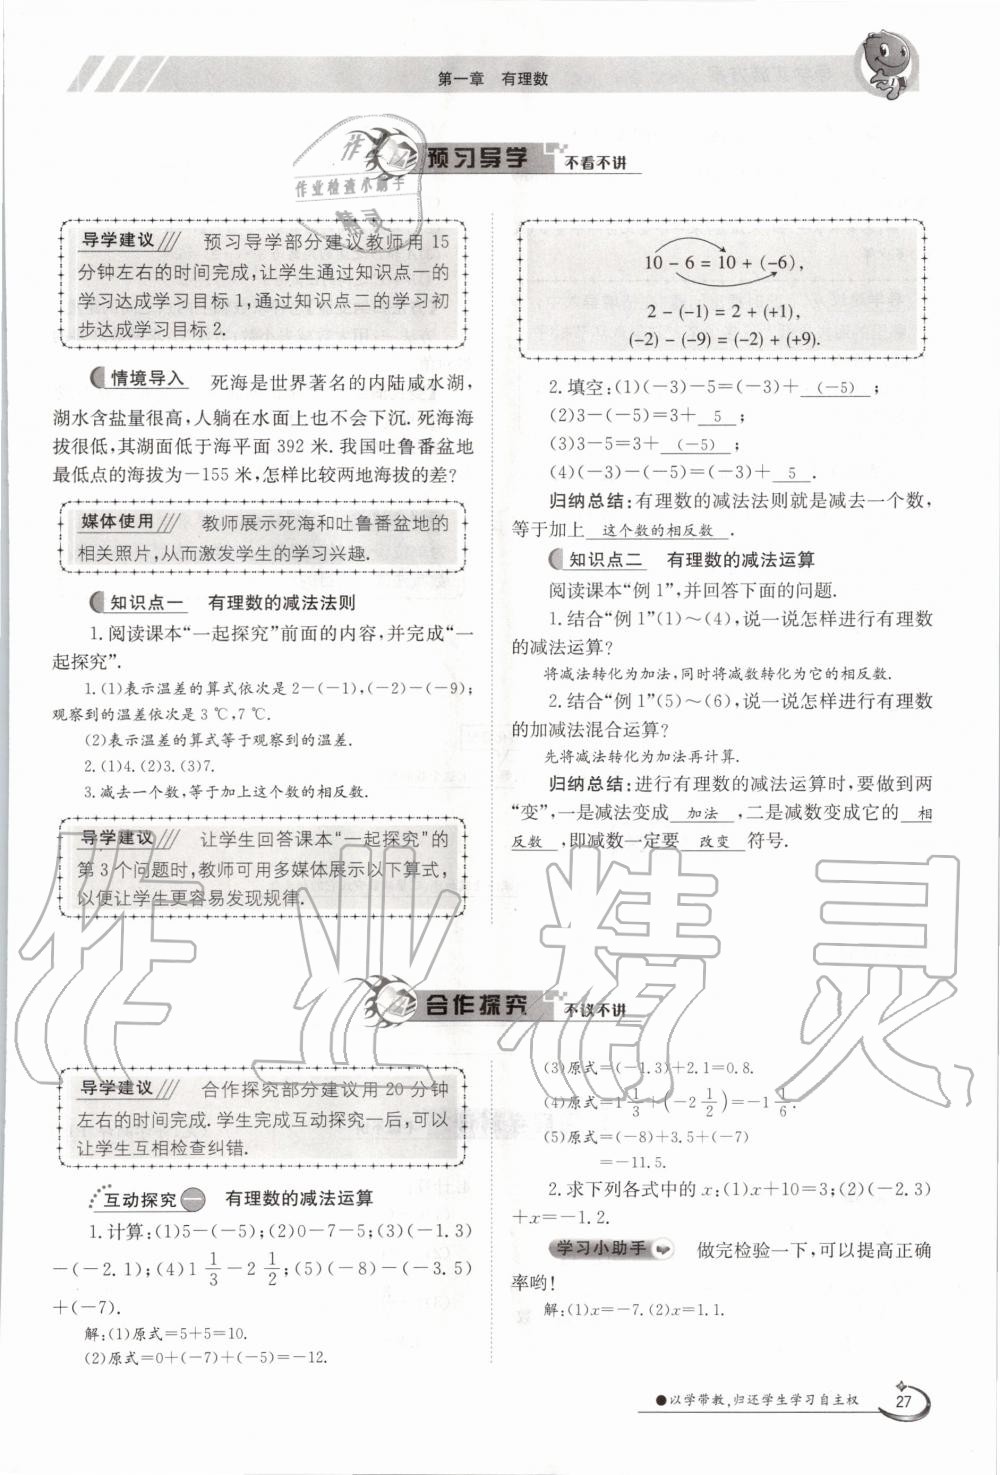 第一章 有理数
预习导学 不看不讲
导学建议 预习导学部分建议教师用 15
分钟左右的时间完成,让学生通过知识点一的
学习达成学习目标 1,通过知识点二的学习初
步达成学习目标 2.
情境导入 死海是世界著名的内陆咸水湖,
湖水含盐量很高,人躺在水面上也不会下沉. 死海海
拔很低,其湖面低于海平面 392 米. 我国吐鲁番盆地
最低点的海拔为－155 米,怎样比较两地海拔的差?
媒体使用 教师展示死海和吐鲁番盆地的
相关照片,从而激发学生的学习兴趣.
知识点一 有理数的减法法则
1. 阅读课本“一起探究”前面的内容,并完成“一
起探究”.
1. (1)表示温差的算式依次是 2－(－1),(－2)－(－9);
观察到的温差依次是 3 ℃,7 ℃.
(2)表示温差的算式等于观察到的温差.
2. (1)4. (2)3. (3)7.
3. 减去一个数,等于加上这个数的相反数.
导学建议 让学生回答课本“一起探究”的
第 3 个问题时,教师可用多媒体展示以下算式,
以便让学生更容易发现规律.
10－6＝10＋(－6),
2－(－1)＝2＋(＋1),
(－2)－(－9)＝(－2)＋(＋9).
2. 填空:(1)(－3)－5＝(－3)＋ (－5) ;
(2)3－(－5)＝3＋ 5 ;
(3)3－5＝3＋ (－5) ;
(4)(－3)－(－5)＝(－3)＋ 5 .
归纳总结:有理数的减法法则就是减去一个数,
等于加上 这个数的相反数 .
知识点二 有理数的减法运算
阅读课本“例 1”,并回答下面的问题.
1. 结合“例 1”(1)～(4),说一说怎样进行有理数
的减法运算?
将减法转化为加法,同时将减数转化为它的相反数.
2. 结合“例 1”(5)～(6),说一说怎样进行有理数
的加减法混合运算?
先将减法转化为加法再计算.
归纳总结:进行有理数的减法运算时,要做到两
“变”,一是减法变成 加法 ,二是减数变成它的 相
反数 ,即减数一定要 改变 符号.
合作探究 不议不讲
导学建议 合作探究部分建议用 20 分钟
左右的时间完成. 学生完成互动探究一后,可以
让学生互相检查纠错.
互动探究一 有理数的减法运算
1. 计算:(1)5－(－5);(2)0－7－5;(3)(－1.3)
－(－2.1);(4)1 1/3－2 1/2;(5)(－8)－(－3.5)
＋(－7).
解:(1)原式＝5＋5＝10.
(2)原式＝0＋(－7)＋(－5)＝－12.
(3)原式＝(－1.3)＋2.1＝0.8.
(4)原式＝1 1/3＋(－2 1/2)＝－1 1/6.
(5)原式＝(－8)＋3.5＋(－7)
＝－11.5.
2. 求下列各式中的 x:(1)x＋10＝3;(2)(－2.3)
＋x＝－1.2.
学习小助手 做完检验一下,可以提高正确
率哟!
解:(1)x＝－7. (2)x＝1.1.
●以学带教,归还学生学习自主权
27
作业检查小助手
作业精灵